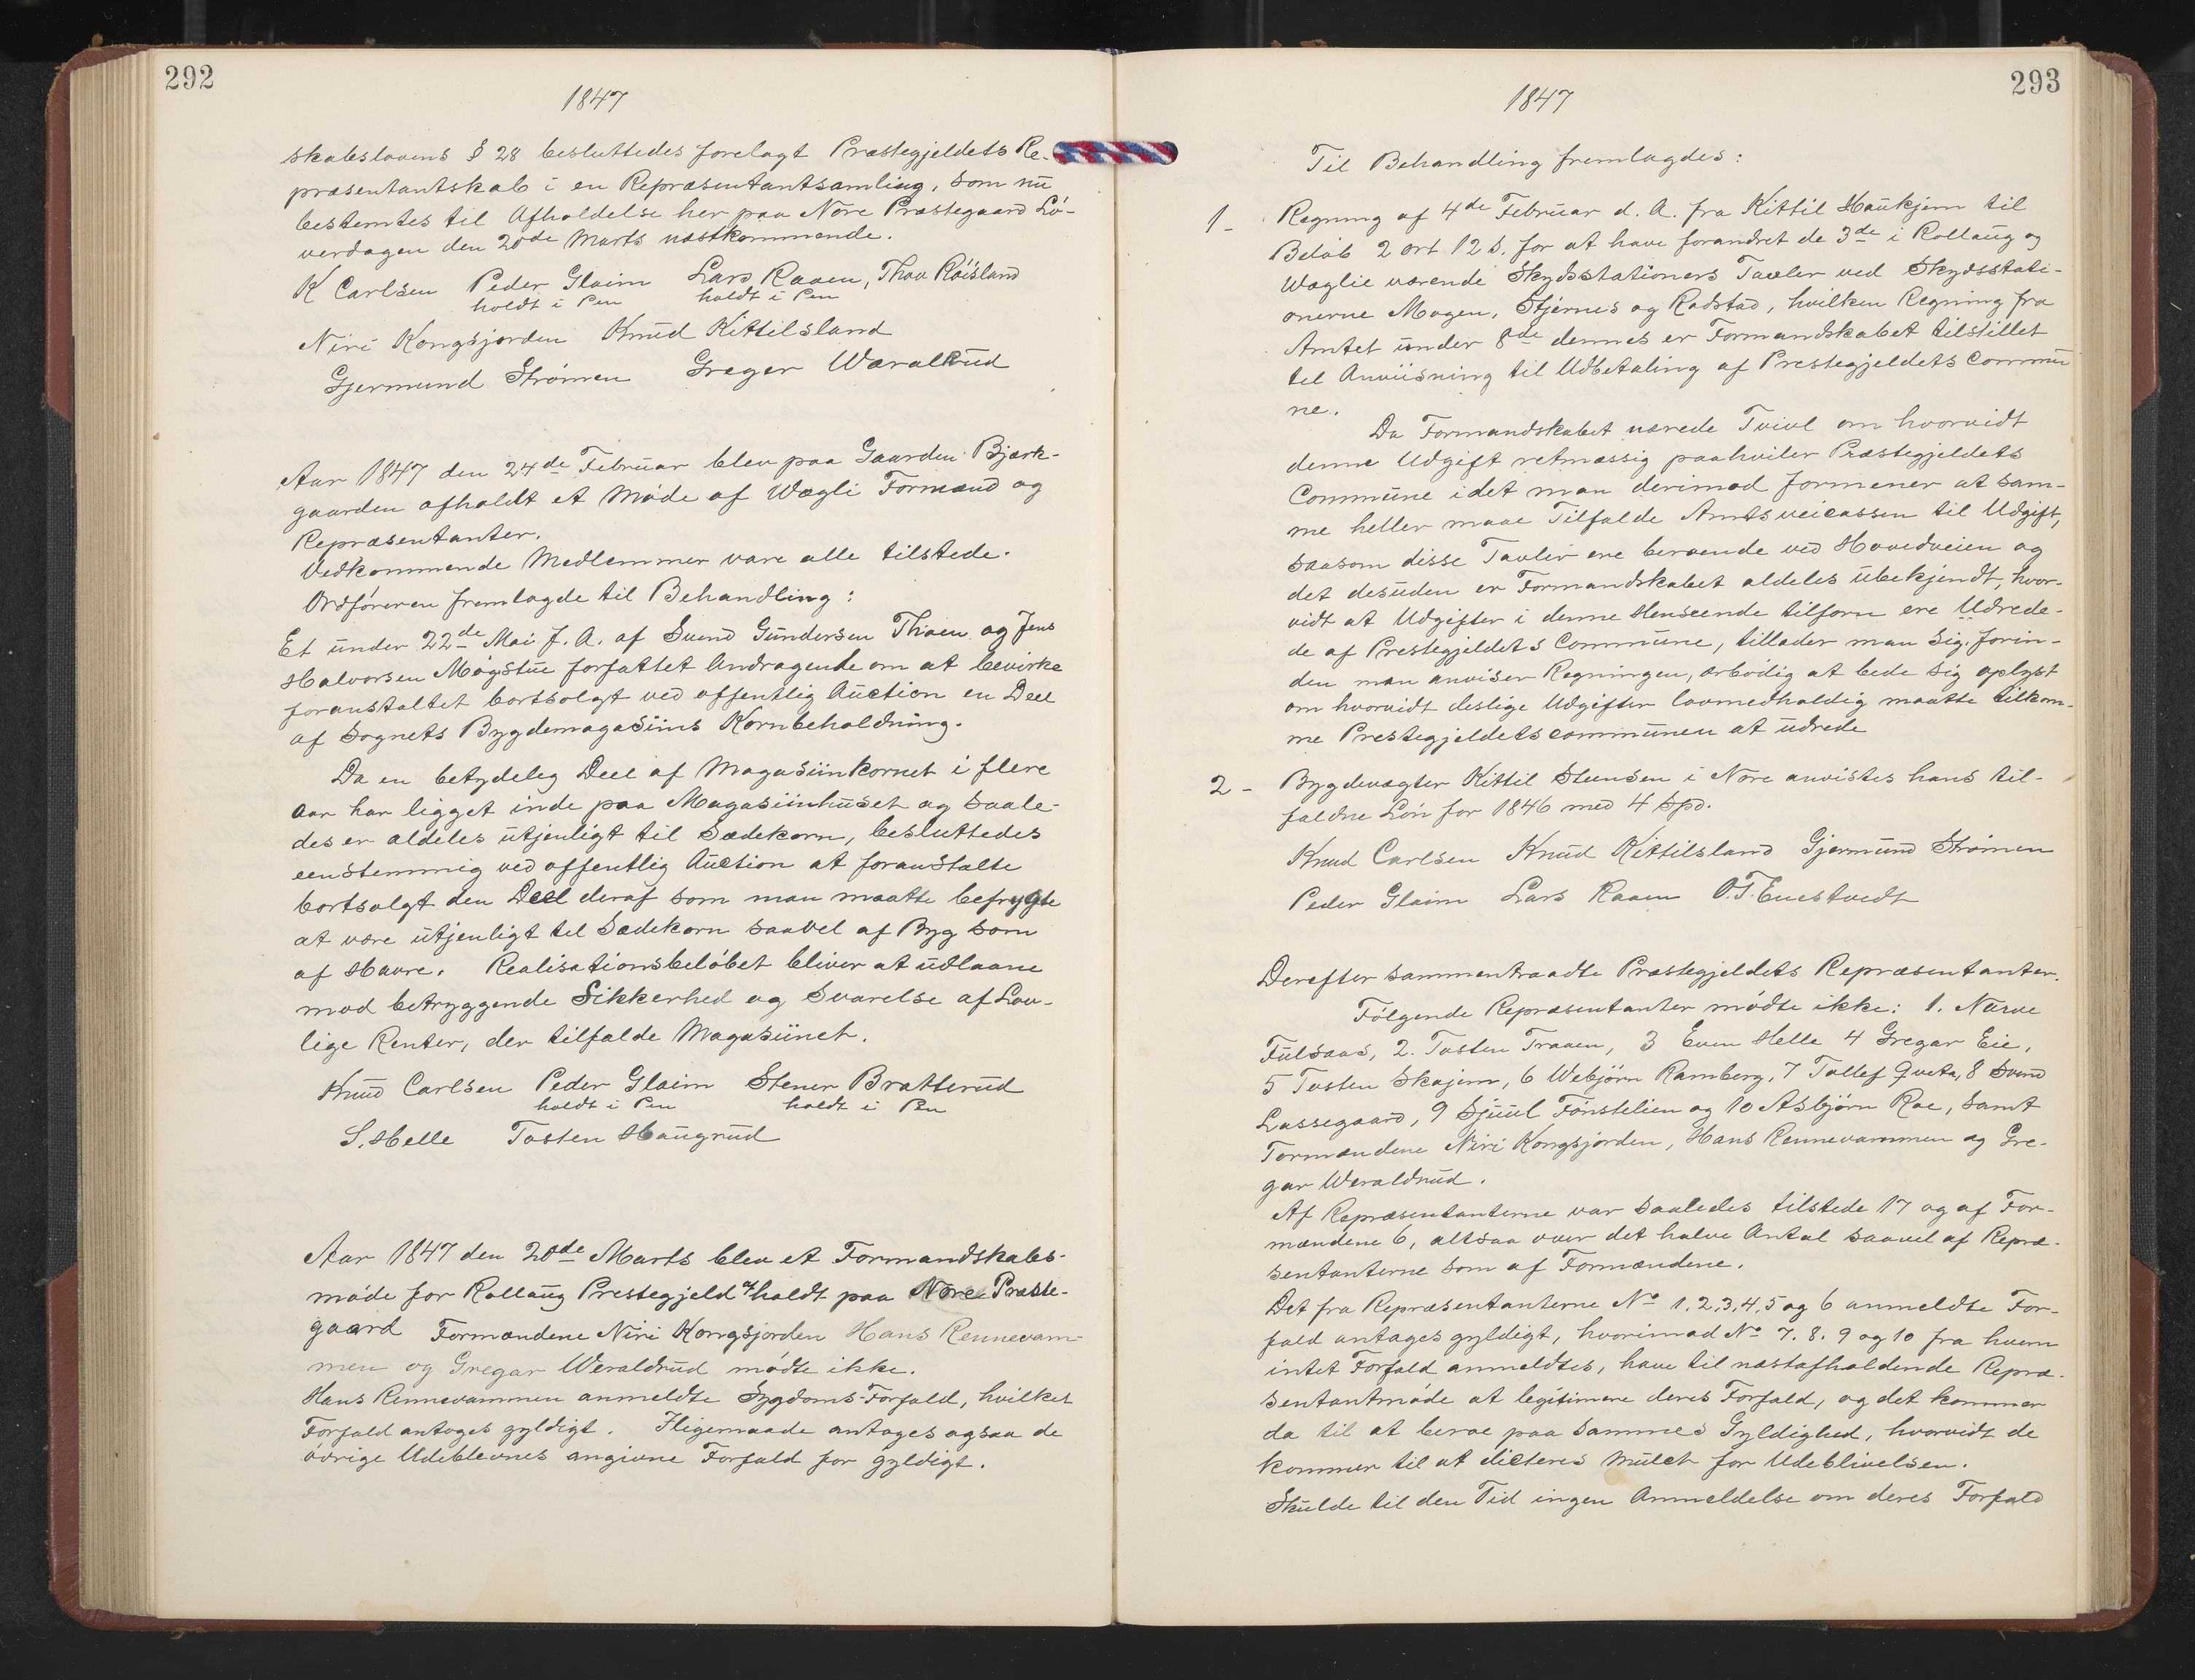 292
1847
skabslovens § 28 besluttedes forelagt Præstegjeldets Re-
præsentantskab i en Repræsentantsamling, som nu
bestemtes til Afholdelse her paa Nore Præstegaard Lö-
verdagen den 20de Marts næstkommende.
K Carlsen Peder Glaim Lars Raaen, Thov Röisland
holdt i Pen holdt i Pen
Niri Kongsjorden Knud Kittilsland
Gjermund Strömen Greger Wæralrud
Aar 1847 den 24de Februar blev paa Gaarden Bjærk-
gaarden afholdt et Möde af Wægli Formænd og
Repræsentanter.
Vedkommende Medlemmer vare alle tilstede.
Ordföreren fremlagde til Behandling:
Et under 22de Mai f. A. af Svend Gundersen Thoen og Jens
Halvorsen Mögstue forfattet Andragende om at bevirke
foranstaltet bortsolgt ved offentlig Auction en Deel
af Sognets Bygdemagasiins Kornbeholdning.
Da en betydelig Deel af Magasiinkornet i flere
Aar har ligget inde paa Magasiinhuset og saale-
des er aldeles utjenligt til Sædekorn, besluttedes
eenstemmig ved offentlig Auction at foranstalte
bortsolgt den Deel deraf som man maatte befrygte
at være utjenligt til Sædekorn saavel af Byg som
af Havre. Realisationsbelöbet bliver at udlaane
mod betryggende Sikkerhed og Svarelse af Lov-
lige Renter, der tilfalde Magasiinet.
Knud Carlsen Peder Glaim Stener Bratterud
holdt i Pen holdt i Pen
S. Helle Tosten Haugrud
Aar 1847 den 20de Marts blev et Formandskabs-
möde for Rollaug Prestegjeld afholdt paa Nore Præste-
gaard Formændene Niri Kongsjorden Hans Rennevam-
men og Gregar Weraldrud mödte ikke.
Hans Rennevammen anmeldte Sygdoms-Forfald, hvilket
Forfald antoges gyldigt. Iligemaade antoges ogsaa de
övrige Udeblevnes angivne Forfald for gyldigt.
293
1847
Til Behandling fremlagdes:
1- Regning af 4de Februar d. A. fra Kittil Haukjem til
Belöb 2 ort 12 s. for at have forandret de 3de i Rollaug og
Wæglie værende Skydsstationers Tavler ved Skydsstati-
onerne Mogen, Stjernes og Rødstad, hvilken Regning fra
Amtet under 8de dennes er Formandskabet tilstillet
til Anviisning til Udbetaling af Prestegjeldets Commu
ne.
Da Formandskabet nærede Tvivl om hvorvidt
denne Udgift retmæssig paahviler Præstegjeldets
Commune idet man derimod formener at sam-
me heller maae Tilfalde Amtsveicassen til Udgift,
saasom disse Tavler ere beroende ved Hovedveien og
det desuden er Formandskabet aldeles ubekjendt, hvor-
vidt at Udgifter i denne Henseende tilforn ere Udrede-
de af Prestegjeldets Commune, tillader man sig, forin-
den man anviser Regningen, ærbödig at bede sig oplyst
om hvorvidt deslige Udgifter lovmedholdig maatte tilkom-
me Prestegjeldetscommunen at udrede
2- Bygdevægter Kittil Stensen i Nore anvistes hans til-
faldne Lön for 1846 med 4 Spd.
Knud Carlsen Knud Kittilsland Gjermund Strömen
Peder Glaim Lars Raaen O.T. Enestvedt
Derefter sammentraadte Præstegjeldets Repræsentanter.
Fölgende Repræsentanter mödte ikke: 1. Narve
Fulsaas, 2. Tosten Traaen, 3 Even Helle 4 Gregar Eie,
5 Tosten Skajem, 6 Webjörn Ramberg, 7 Tollef Qveta, 8 Svend
Lassegaard, 9 Sjuul Fönstelien og 10 Asbjörn Roe, samt
Formændene Niri Kongsjorden, Hans Rennevammen og Gre-
gar Weraldrud.
Af Repræsentanterne var saaledes tilstede 17 og af For-
mændene 6, altsaa over det halve Antal saavel af Repræ-
sentanterne som af Formændene.
Det fra Repræsentanterne No 1,2,3,4,5 og 6 anmeldte For-
fald antages gyldigt, hvorimod No 7. 8. 9 og 10 fra hvem
intet Forfald anmeldtes, have til næstafholdende Repræ-
sentantmöde at legitimere deres Forfald, og det kommer
da til at beroe paa sammes Gyldighed, hvorvidt de
kommer til at dicteres Mulct for Udeblivelsen.
Skulde til den Tid ingen Anmeldelse om deres Forfald